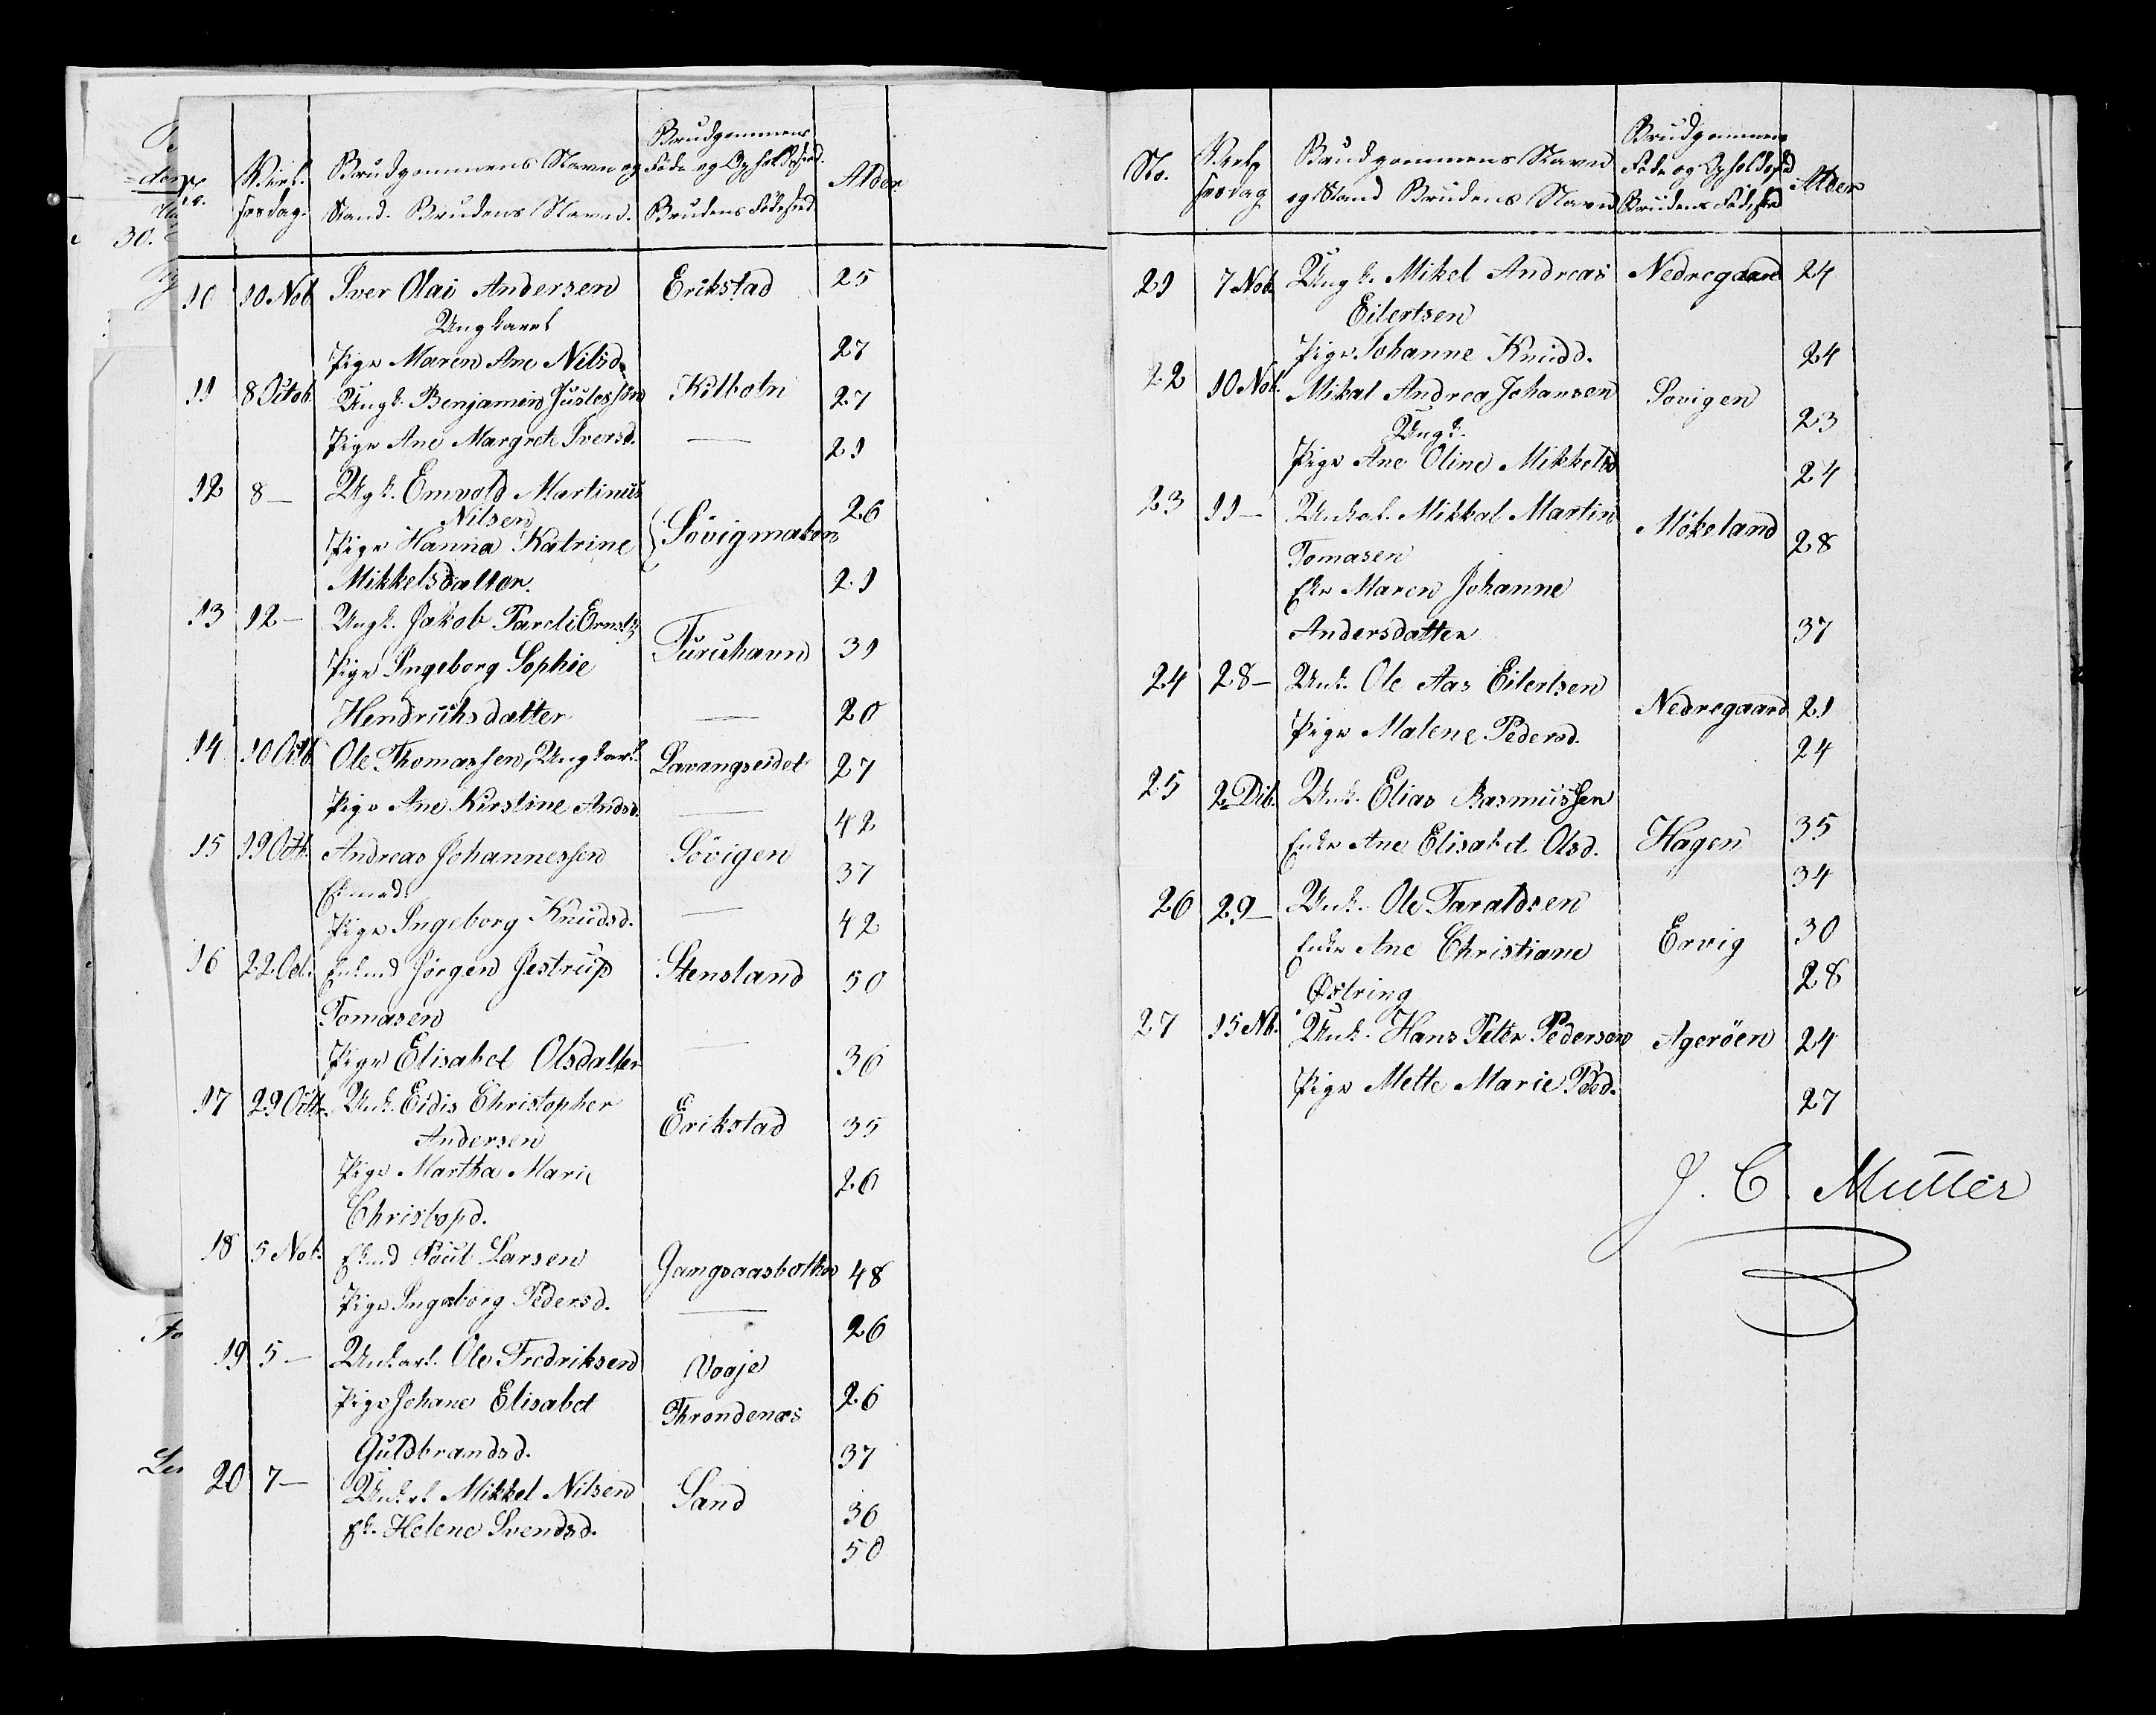 No. Viel- Brudgommens Navn og Brudgommens Føde og Opholdsted. Alder
sesdag. Stand. Brudens Navn. Brudens Fødested
10 10 Nob Iver Olai Andersen Erikstad 25
Ungkarl
Pige Maren Ane Nilsd. 27
11 8 Octob. Ungk. Benjamin Juslessen Kilbotn 27
Pige Ane Margrete Iversd. — 21
12 8 — Ugk. Emvold Martinus
Nilsen 26
Pige Hanna Katrine Sövigmaken
Mikkelsdatter. 21
13 12 — Ungk. Jakob Pareli Ernstz Furuhavn 31
Pige Ingeborg Sophie
Hendrichsdatter — 20
14 10 Octb. Ole Thomassen, Ungkarl Lavangseidet 27
Pige Ane Kirstine Andsd. — 42
15 19 Octb. Andreas Johannessen Sövigen 37
Ekmd.
Pige Ingeborg Knudsd. — 42
16 22 Oct. Enkmd Jörgen Jestrup Stensland 50
Tomasen
Pige Elisabet Olsdatter — 36
17 29 Octb. Unk. Eidis Christopher Erikstad 35
Andersen
Pige Martha Marie 26
Christopd.
18 5 Nob. Ekmd Poul Larsen Gangsaasbotten 48
Pige Ingeborg Pedersd. — 26
19 5 — Unkarl. Ole Fredriksen Vogje 26
Pige Johane Elisabet Throndenæs
Guldbrandsd. 37
20 7 — Unkrl Mikkel Nilsen Sand 36
Ek. Helene Svendsd. 50
No. Viel- Brudgommens Navn Brudgommens Føde og Opholdsted Alder
sesdag og Stand Brudens Navn Brudens Fødested
21 7 Nob. Ungk. Mikel Andreas Nedregaard 24
Eilertsen
Pige Johanne Knudd. 24
22 10 Nob. Mikal Andrea Johansen Sovigen 23
Ungk.
Pige Ane Oline Mikkelsd 24
23 11 — Unkal. Mikkal Martin Mökeland 28
Tomasen
Eke Maren Johanne
Andersdatter 37
24 28 — Unk. Ole Aas Eilertsen Nedregaard 21
Pige Malene Pedersd. 24
25 2 Dib. Unk. Elias Rasmussen 35
Enke Ane Elisabet Olsd. Hagen 34
26 29 — Unk. Ole Taraldsen 30
Enke Ane Christiane Ervig
Østring 28
27 15 Nb. Unk. Hans Peter Pedersen Ageröen 24
Pige Mette Marie Pedd. 27
J. C. Müller